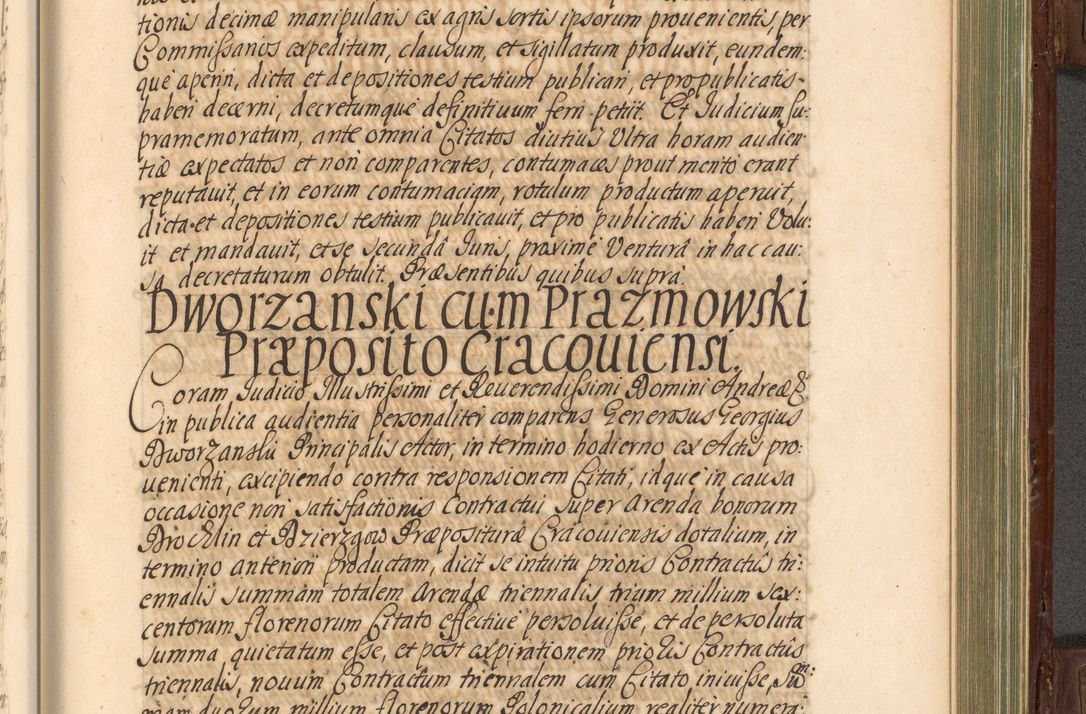 tionis decimæ manipularis ex agris sortis ipsorum prouenientis, per
Commissarios expeditum, clausum, et sigillatum produxit, eundem:
que aperiri, dicta et depositiones testium publicari, et pro publicatis
haberi decerni, decretumque definitiuum ferri petiit. Et Judicium su:
pramemoratum, ante omnia Citatos diutius Ultra horam audien:
tiæ expectatos et non comparentes, contumaces prout merito erant
reputauit, et in eorum contumaciam, rotulum productum aperuit,
dicta et depositiones testium publicauit, et pro publicatis haberi Volu:
it et mandauit, et se secundâ Juris, proximè Venturâ in hac cau:
sa decretaturum obtulit. Præsentibus quibus supra.
Dworzanski cum Prazmowski
Præposito Cracouiensi.
Coram Judicio Illustrissimi et Reuerendissimi Domini Andreæ &
in publica audientia personaliter comparens Generosus Georgius
Dworzanski Principalis Actor, in termino hodierno ex Actis pro:
uenienti, excipiendo contra responsionem Citati, idque in causa
occasione non satisfactionis Contractui super Arenda bonorum
et Dzierzgow Præposituræ Cracouiensis dotalium, in
termino anteriori productam, dicit se intuitu prioris Contractûs tri:
ennalis summam totalem Arendæ triennalis trium millium sex:
centorum florenorum Citato effectiue persoluisse, et de persoluta
summa quietatum esse, et post expirationem prioris Contractûs
triennalis, nouum Contractum triennalem cum Citato iniuisse, Sum:
mam duorum millium florenorum Polonicalium realiter numera: